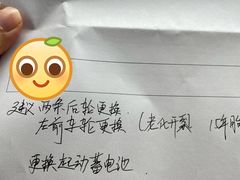 建议两条后轮更换
左前车轮更换 (老化开裂 15年胎
更换起动蓄电池.